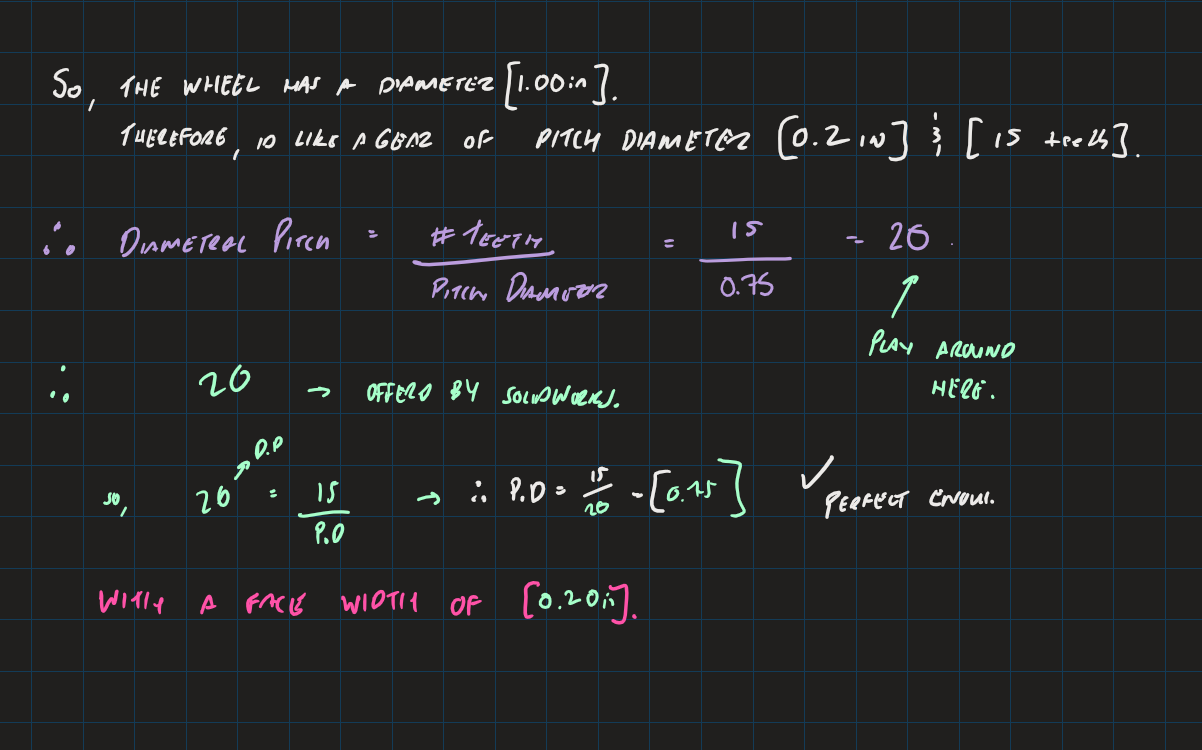 So, THE WHEEL HAS A DIAMETER [1.00in].
THEREFORE, ID LIKE A GEAR OF PITCH DIAMETER [0.2 IN] & [15 teeth].
∴ DIAMETRAL PITCH = # TEETH / PITCH DIAMETER = 15 / 0.75 = 20.
PLAY AROUND
HERE.
∴ 20 → OFFERD BY SOLIDWORKS.
D.P
so, 20 = 15 / P.D → ∴ P.D = 15 / 20 = [0.75] ✓ PERFECT ENOUI.
WITH A FACE WIDTH OF [0.20in].